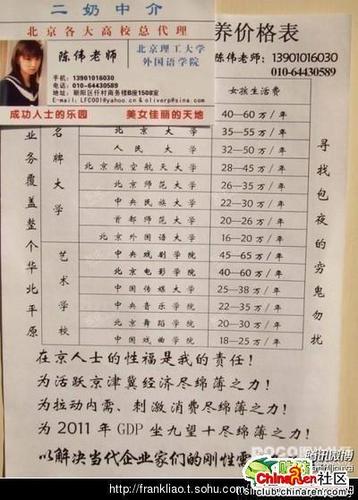 二奶中介
北京各大高校总代理
陈伟老师
北京理工大学
外国语学院
手机：13901016030
电话：010-64430589
地址：朝阳区仟村商务楼B座1508室
E-mail：LFC001@yahoo.cn & oliverp@sina.com
成功人士的乐园 美女佳丽的天地
养价格表
陈伟老师：13901016030
010-64430589
女孩生活费
业务覆盖整个华北平原
名牌大学
40—60 万/年
北京大学 35—55 万/年
人民大学 32—50 万/年
北京航空航天大学 28—45 万/年
北京师范大学 26—35 万/年
中央民族大学 22—30 万/年
首都师范大学 20—26 万/年
北京外国语大学 16—20 万/年
艺术学校
中央戏剧学院 45—65 万/年
北京电影学院 40—60 万/年
中国传媒大学 25—38 万/年
中央音乐学院 22—35 万/年
北京舞蹈学院 20—30 万/年
中国戏曲学院 18—25 万/年
寻找包夜的穷鬼勿扰
在京人士的性福是我的责任！
为活跃京津冀经济尽绵薄之力！
为拉动内需、刺激消费尽绵薄之力！
为 2011 年 GDP 坐九望十尽绵薄之力！
以解决当代企业家们的刚性需
腾讯微博
ChinaRen社区
club.chinaren.com
http://frankliao.t.sohu.com